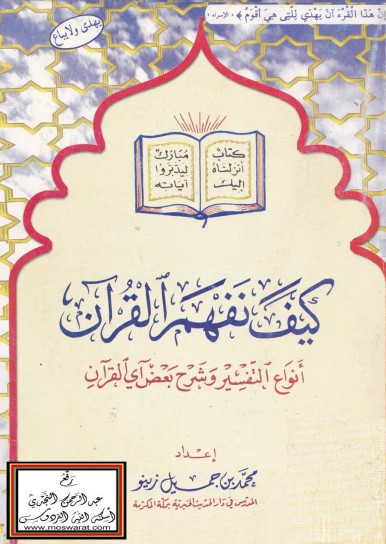 إِنَّ هَذَا الْقُرْءَانَ يَهْدِي لِلَّتِي هِيَ أَقْوَمُ ﴾ «الإسراء»
يهدى ولا يباع
كتاب
أنزلناه
إليك
مبارك
ليدبروا
آياته
كيف نفهم القرآن
أنواع التفسير وشرح بعض آي القرآن
إعداد
محمد بن جميل زينو
المدرس في دار الحديث الخيرية بمكة المكرمة
رفع
عبد الرحمن النجدي
أسكنه الله الفردوس
www.moswarat.com